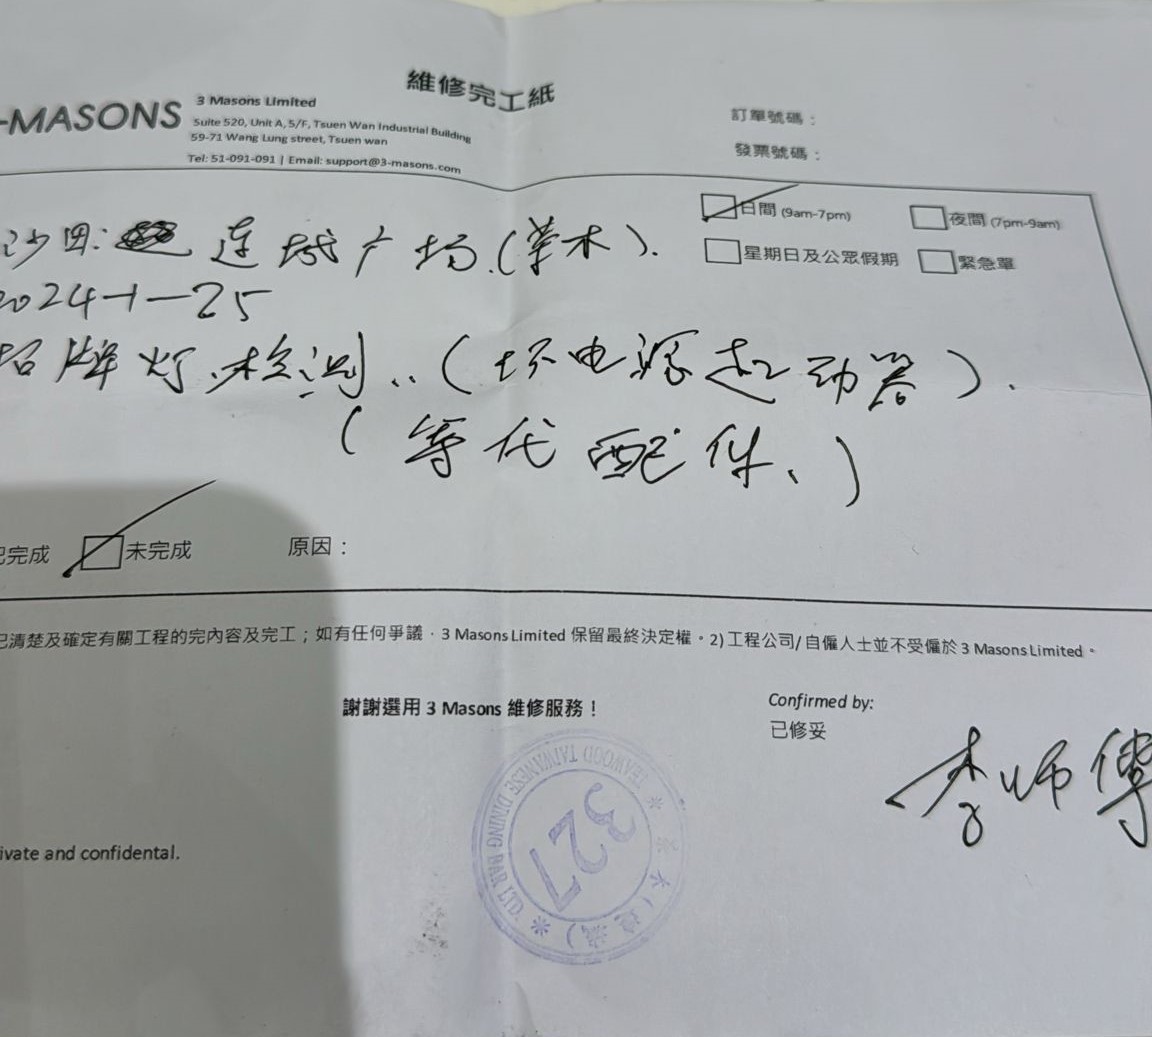 維修完工紙
-MASONS
3 Masons Limited
Suite 520, Unit A, 5/F, Tsuen Wan Industrial Building
59-71 Wang Lung street, Tsuen wan
Tel: 51-091-091 | Email: support@3-masons.com
訂單號碼：
發票號碼：
日間 (9am-7pm)
夜間 (7pm-9am)
星期日及公眾假期
緊急單
沙田: 连城广场.(茶木).
2024-1-25
招牌灯.检测..(坏电源起动器).
(等代配件、)
已完成
未完成
原因：
已清楚及確定有關工程的完內容及完工；如有任何爭議，3 Masons Limited 保留最終決定權。2) 工程公司/自僱人士並不受僱於 3 Masons Limited。
謝謝選用 3 Masons 維修服務！
Confirmed by:
已修妥
李师傅
TEAWOOD TAIWANESE DINING BAR LTD.
327
茶木(連城)
ivate and confidental.